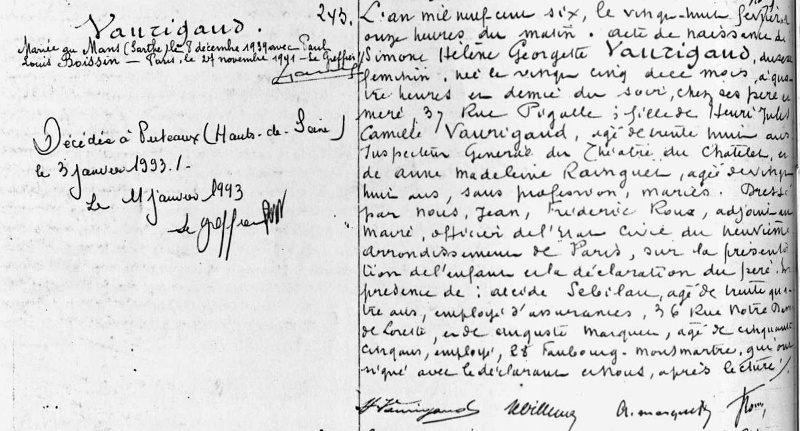 243.
Vaurigaud.
Mariée au Mans (Sarthe) le 8 décembre 1939 avec Paul
Louis Boissin — Paris, le 27 novembre 1941 — Le Greffier
Décédée à Puteaux (Hauts-de-Seine)
le 3 janvier 1993./.
Le 11 janvier 1993
Le greffier
L'an mil neuf cent six, le vingt-huit février
onze heures du matin. acte de naissance de
Simone Hélène Georgette Vaurigaud, du sexe
féminin, née le vingt cinq dece mois, à qua
tre heures et demie du soir, chez ses père et
mère, 37 Rue Pigalle ; fille de Henri Jules
Camille Vaurigaud, agé de trente huit ans
Inspecteur Général du Théâtre du Chatelet, et
de anne madeleine Rainguet, agée de vingt
huit ans, sans profession, mariés. Dressé
par nous, Jean, Frédéric Roux, adjoint au
maire, officier de l'Etat Civil du neuvième
arrondissement de Paris, sur la présenta
tion de l'enfant et la déclaration du père. En
présence de : alcide Sebilau, agé de trente qua
tre ans, employé d'assurances, 36 Rue Notre Dame
de Lorette, et de auguste marquet, agé de cinquante
cinq ans, employé, 28 Faubourg-montmartre, qui ont
signé avec le déclarant et Nous, après lecture./.
H Vaurigaud A. marquet Roux